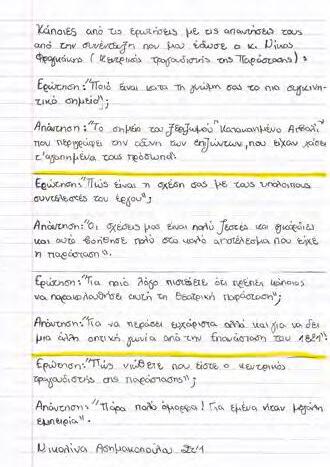 Κάποιες από τις ερωτήσεις με τις απαντήσεις τους
από την συνέντευξη που μου έδωσε ο κ. Νίκος
(Κεντρικός τραγουδιστής της Παράστασης):
Ερώτηση: "Ποιό είναι κατά τη γνώμη σας το πιο συγκινη-
τικό σημείο";
Απάντηση: "Το σημείο του "Καταραμένο Ασκέρι",
που περιγράφει την οδύνη των επιζώντων, που είχαν χάσει
τ'αγαπημένα τους πρόσωπα".
Ερώτηση: "Πώς είναι η σχέση σας με τους υπόλοιπους
συντελεστές του έργου";
Απάντηση: "Οι σχέσεις μας είναι πολύ ζεστές και φιλικές
και αυτό βοήθησε πολύ στο καλό αποτέλεσμα που είχε
η παράσταση".
Ερώτηση: "Για ποιό λόγο πιστεύετε ότι πρέπει κάποιος
να παρακολουθήσει αυτή τη θεατρική παράσταση";
Απάντηση: "Για να περάσει ευχάριστα αλλά και για να δει
μια άλλη οπτική γωνία από την Επανάσταση του 1821".
Ερώτηση: "Πώς νιώθετε που είστε ο κεντρικός
τραγουδιστής της παράστασης";
Απάντηση: "Πάρα πολύ όμορφα! Για εμένα ήταν μεγάλη
εμπειρία".
Νικολίνα Ασημακοπούλου Στ'1